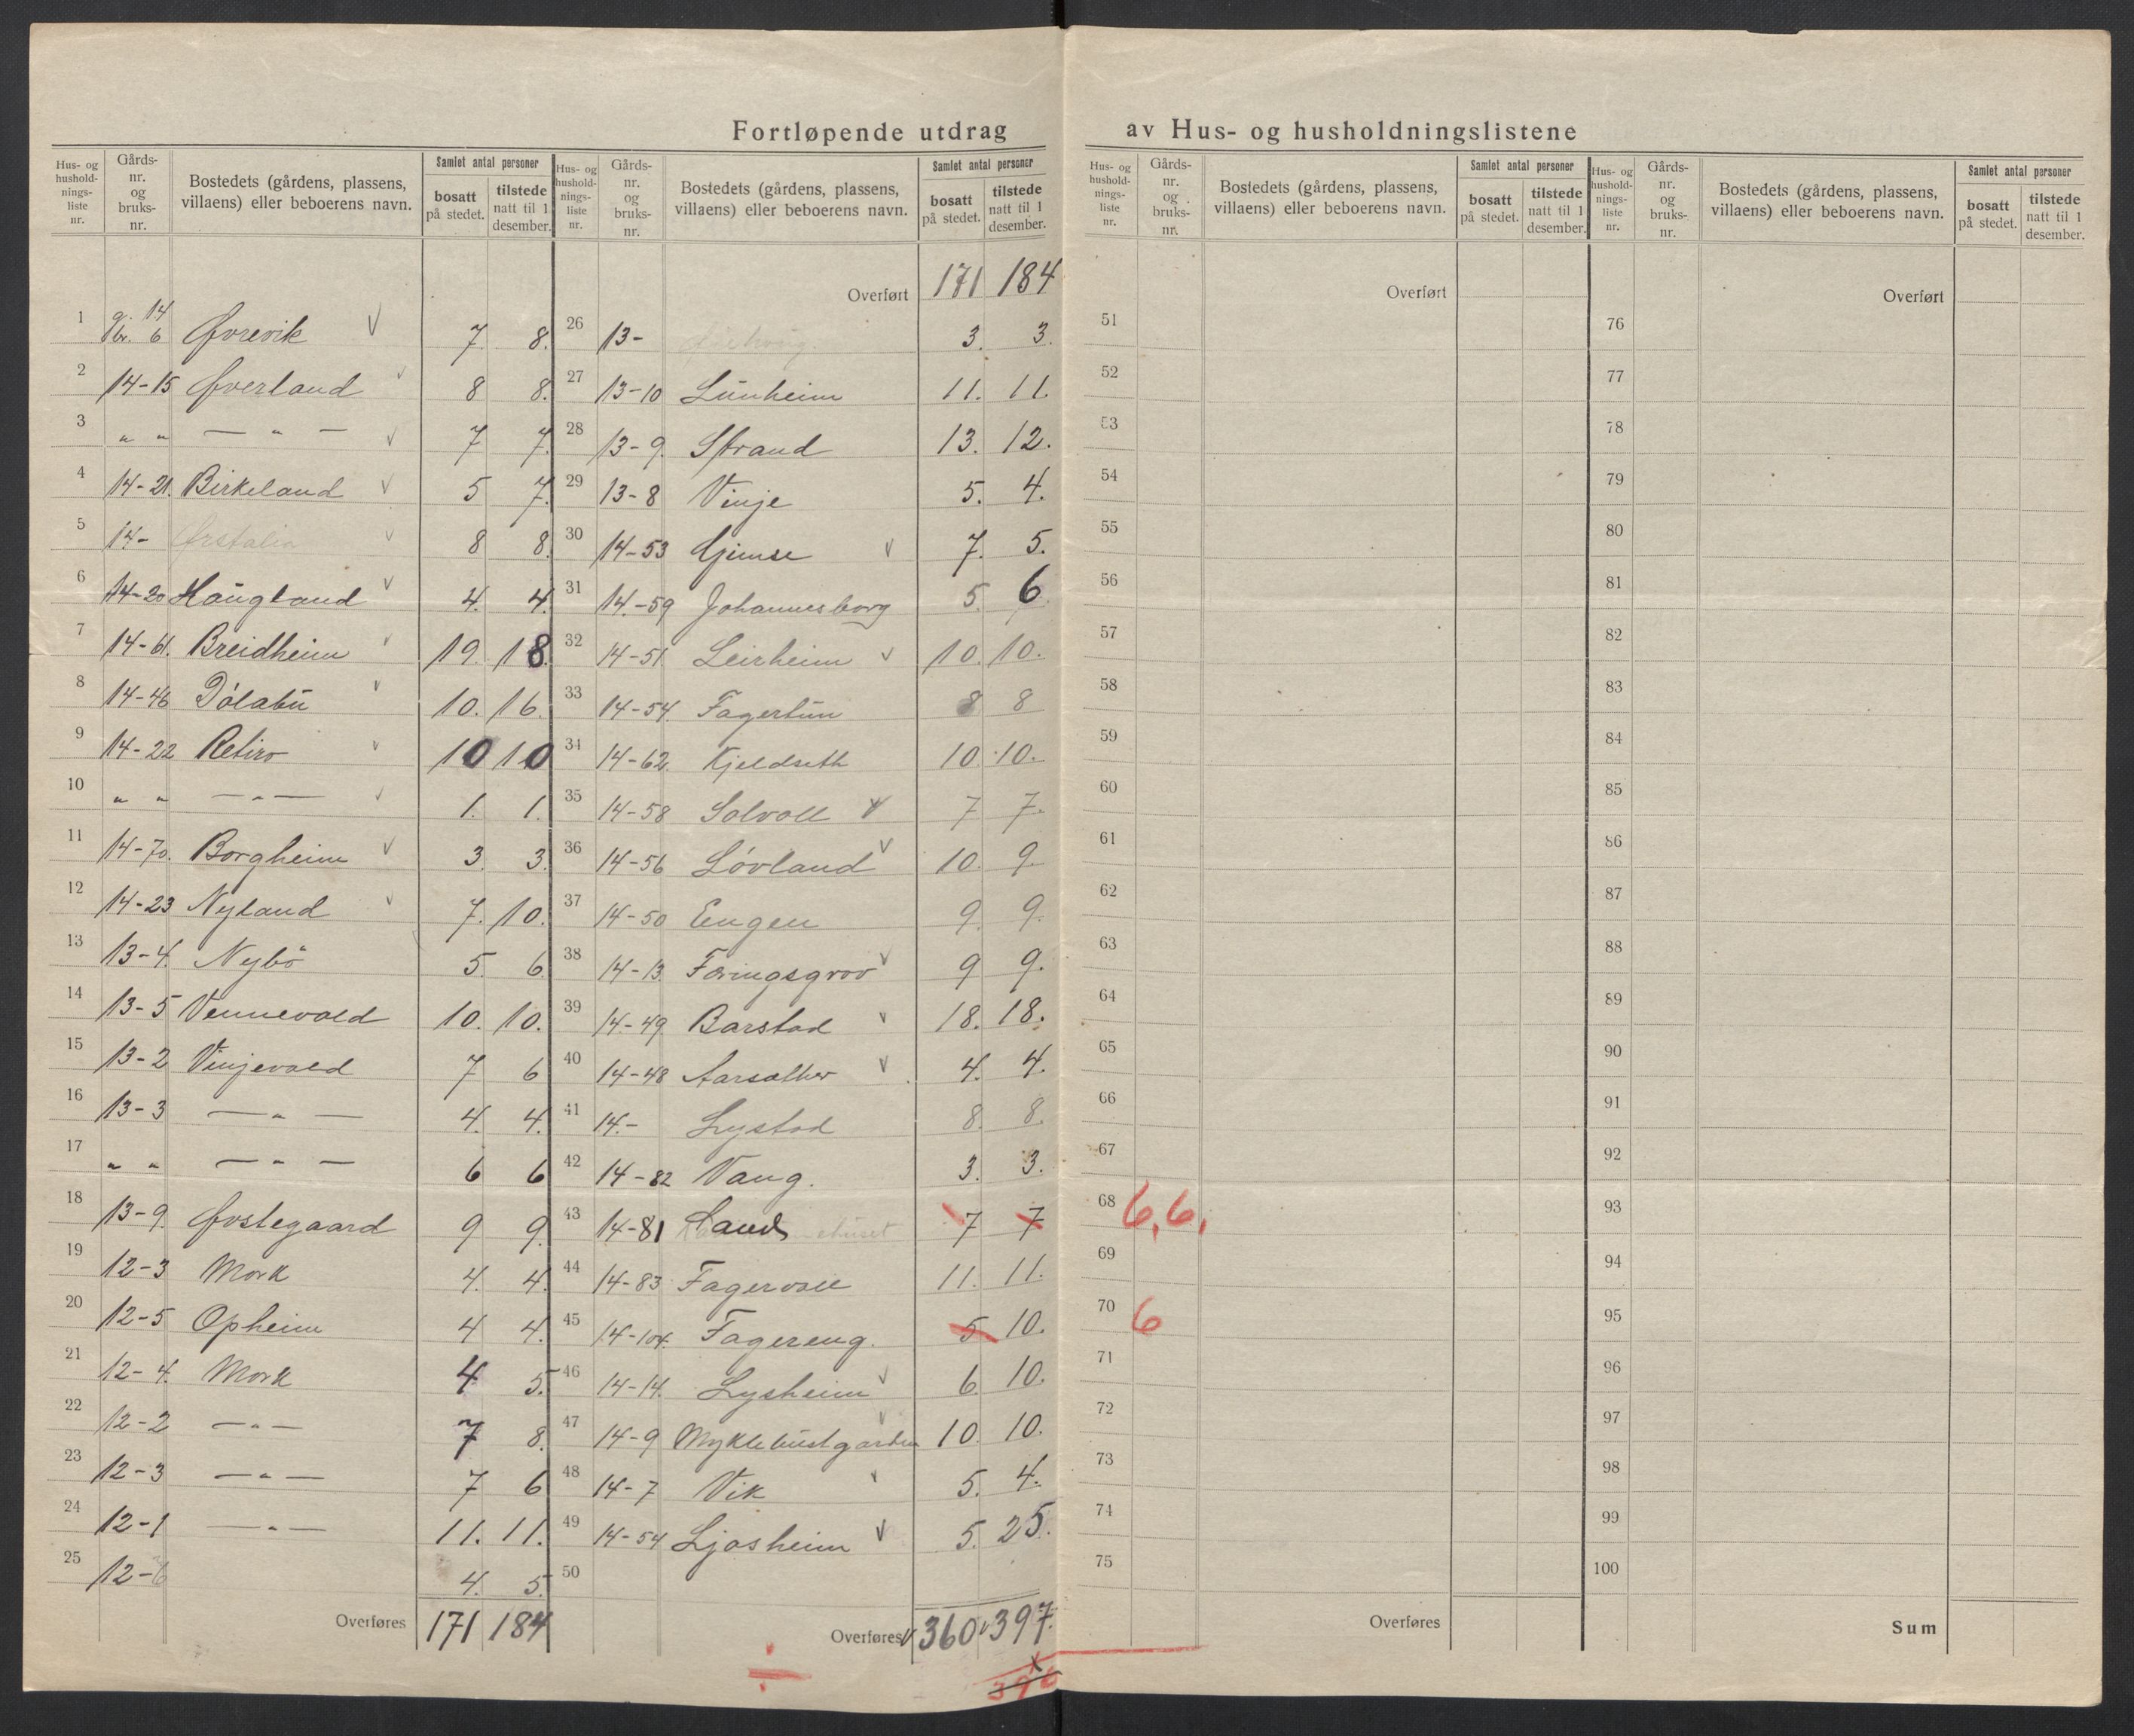 Fortløpende utdrag av Hus- og husholdningslistene
Hus- og hushold- nings- liste nr. | Gårds- nr. og bruks- nr. | Bostedets (gårdens, plassens, villaens) eller beboerens navn. | Samlet antal personer | bosatt på stedet. | tilstede natt til 1 desember.
1 g. 14 br. 6 Øvrevik V 7. 8.
2 14-15 Øverland v 8 8.
3 " " — " — v 7 7.
4 14-21. Birkeland v 5 7.
5 14- v 8 8.
6 14-20 Haugland v 4. 4.
7 14-61. Breidheim v 19. 18.
8 14-46 Dólabu v 10. 16.
9 14-22 Retiro v 10 10
10 " " — " — v 1. 1.
11 14-70. Borgheim v 3. 3.
12 14-23 Nyland v 7. 10.
13 13-4. Nybö 5. 6.
14 13-5 Vennevold 10. 10.
15 13-2 Vinjevold 7 6
16 13-3 — " — 4. 4.
17 " " — " — 6 6
18 13-9. Østegaard 9 9.
19 12-3 Mork 4. 4.
20 12-5 Opheim 4 4.
21 12-4. Mork 4 5.
22 12-2 — " — 7 8.
23 12-3 — " — 7 6
24 12-1 — " — 11. 11.
25 12-6 4. 5.
Overføres 171 184
Hus- og hushold- nings- liste nr. | Gårds- nr. og bruks- nr. | Bostedets (gårdens, plassens, villaens) eller beboerens navn. | Samlet antal personer | bosatt på stedet. | tilstede natt til 1 desember.
Overført 171 184
26 13- 3. 3.
27 13-10 Lünheim 11. 11.
28 13-9. Strand 13. 12.
29 13-8 Vinje 5. 4.
30 14-53 Gimse v 7. 5.
31 14-59 Johannesborg 5 6
32 14-51. Leirheim v 10. 10.
33 14-54. Fagertun 8 8
34 14-62. Kjeldseth 10. 10.
35 14-58 Solvoll v 7 7.
36 14-56 Lóvland v 10. 9.
37 14-50 Engen 9. 9.
38 14-13. Føringsgrov v 9 9.
39 14-49. Barstad v 18. 18.
40 14-48 Aarsæther v 4. 4.
41 14.- Lystad 8. 8.
42 14-82 Vang. 3. 3.
43 14-81 Sand 7 7
44 14-83 Fagervoll 11. 11.
45 14-104. Fagereng. 5 10.
46 14-14. Lysheim v 6 10.
47 14-9 Myklebustgarden v 10. 10.
48 14-7 Vik v 5. 4.
49 14-54 Ljosheim v 5. 25.
50
Overføres v 360 v 397.
÷
x
396
Hus- og hushold- nings- liste nr. | Gårds- nr. og bruks- nr. | Bostedets (gårdens, plassens, villaens) eller beboerens navn. | Samlet antal personer | bosatt på stedet. | tilstede natt til 1 desember.
Overført
51
52
53
54
55
56
57
58
59
60
61
62
63
64
65
66
67
68 6, 6,
69
70 6
71
72
73
74
75
Overføres
Hus- og hushold- nings- liste nr. | Gårds- nr. og bruks- nr. | Bostedets (gårdens, plassens, villaens) eller beboerens navn. | Samlet antal personer | bosatt på stedet. | tilstede natt til 1 desember.
Overført
76
77
78
79
80
81
82
83
84
85
86
87
88
89
90
91
92
93
94
95
96
97
98
99
100
Sum